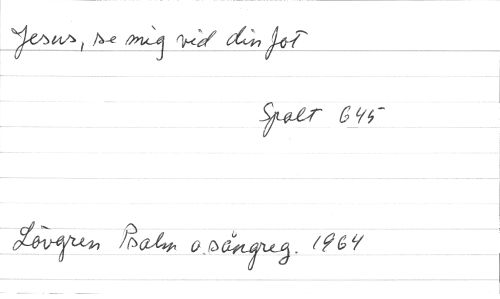 Jesus, se mig vid din fot
Spalt 645
Lövgren Psalm o. sångreg. 1964